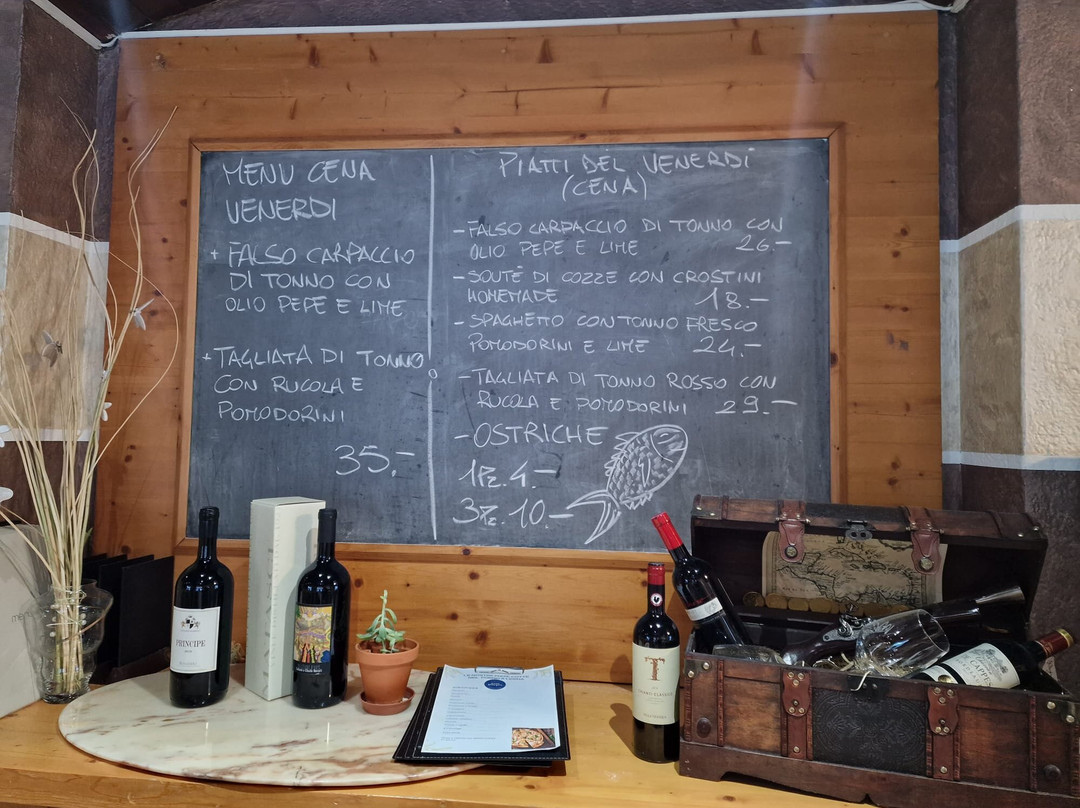 MENU CENA
VENERDI
+ FALSO CARPACCIO
DI TONNO CON
OLIO PEPE E LIME
+ TAGLIATA DI TONNO
CON RUCOLA E
POMODORINI
35.-
PIATTI DEL VENERDÌ
(CENA)
- FALSO CARPACCIO DI TONNO CON
OLIO PEPE E LIME 26.-
- SOUTÉ DI COZZE CON CROSTINI
HOMEMADE 18.-
- SPAGHETTO CON TONNO FRESCO
POMODORINI E LIME 24.-
- TAGLIATA DI TONNO ROSSO CON
RUCOLA E POMODORINI 29.-
- OSTRICHE
1 Pz. 4.-
3 Pz. 10.-
PRINCIPE
T